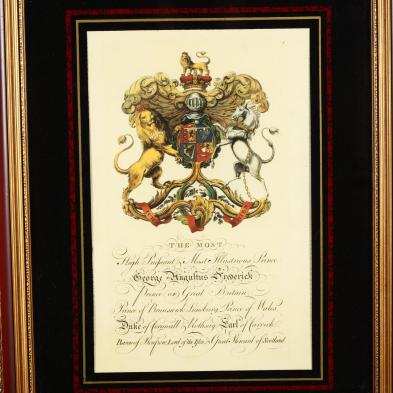 THE MOST
High Puissant & Most Illustrious Prince
George Augustus Frederick
Prince of Great Britain
Prince of Brunswick Lunebourg Prince of Wales
Duke of Cornwall & Rothsay Earl of Carrick
Baron of Renfrew Lord of the Isles & Great Steward of Scotland